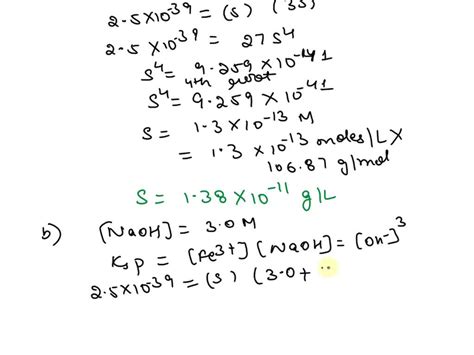 2.5×10⁻³⁹ = (s) (3s)
2.5×10⁻³⁹ = 27s⁴
s⁴ = 9.259×10⁻⁴¹
4th root
s⁴ = 9.259×10⁻⁴¹
s = 1.3×10⁻¹³ M
= 1.3×10⁻¹³ moles/L ×
106.87 g/mol
s = 1.38×10⁻¹¹ g/L
b) [NaOH] = 3.0 M
Ksp = [Fe³⁺] [NaOH] = [OH⁻]³
2.5×10⁻³⁹ = (s) (3.0+